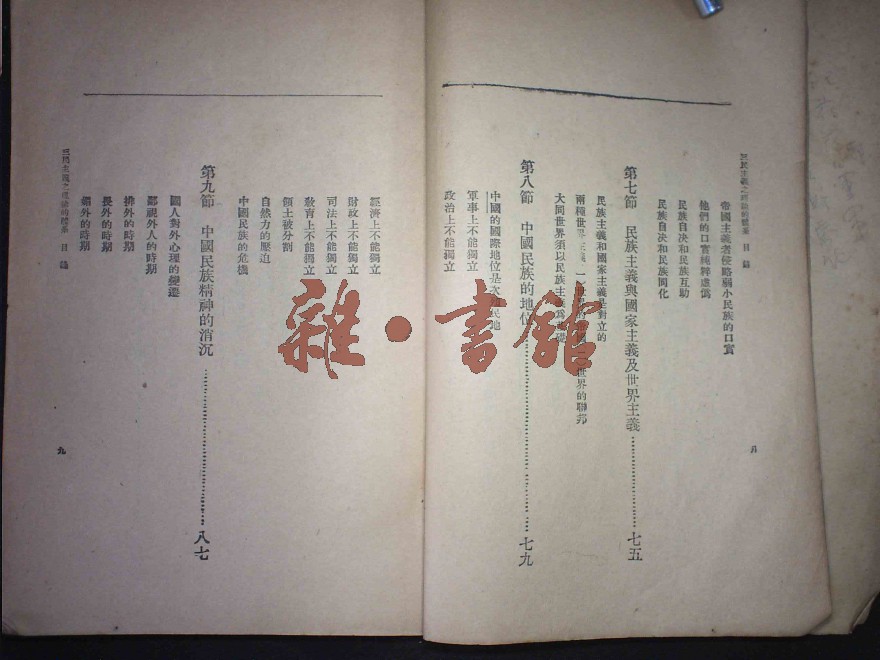 三民主義之理論的體系　目錄
帝國主義者侵略弱小民族的口實
他們的口實純粹虛僞
民族自决和民族互助
民族自决和民族同化
第七節　民族主義與國家主義及世界主義…………七五
民族主義和國家主義是對立的
兩種世界主義
世界的聯邦
大同世界須以民族主義爲基礎
第八節　中國民族的地位…………七九
中國的國際地位是次殖民地
軍事上不能獨立
政治上不能獨立
八
經濟上不能獨立
財政上不能獨立
司法上不能獨立
敎育上不能獨立
領土被分割
自然力的壓迫
中國民族的危機
第九節　中國民族精神的消沉…………八七
國人對外心理的變遷
鄙視外人的時期
排外的時期
畏外的時期
媚外的時期
三民主義之理論的體系　目錄
九
雜·書館